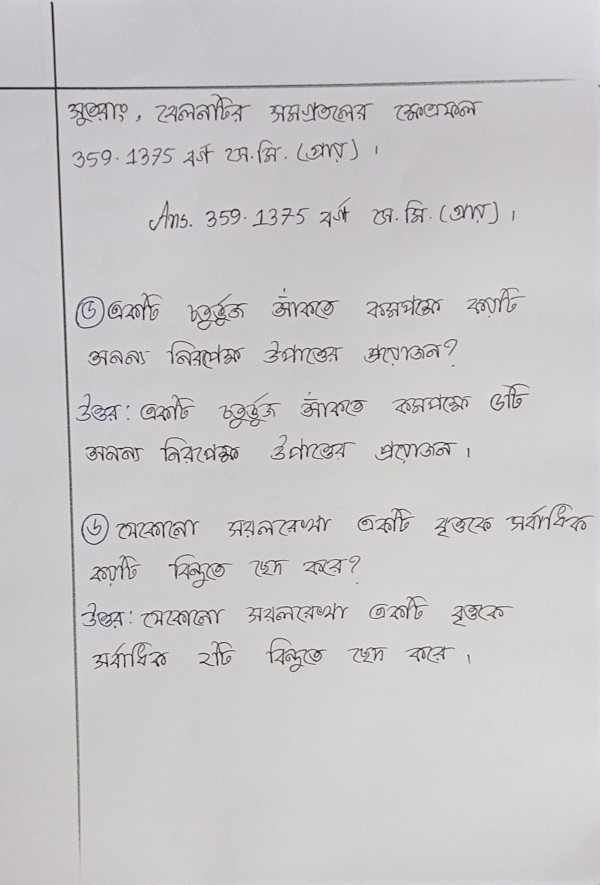 সুতরাং, বেলনটির সমগ্রতলের ক্ষেত্রফল
359.1375 বর্গ সে.মি. (প্রায়)।
Ans. 359.1375 বর্গ সে.মি. (প্রায়)।
৫ একটি চতুর্ভুজ আঁকতে কমপক্ষে কয়টি
অনন্য নিরপেক্ষ উপাত্তের প্রয়োজন?
উত্তর: একটি চতুর্ভুজ আঁকতে কমপক্ষে ৫টি
অনন্য নিরপেক্ষ উপাত্তের প্রয়োজন।
৬ যেকোনো সরলরেখা একটি বৃত্তকে সর্বাধিক
কয়টি বিন্দুতে ছেদ করে?
উত্তর: যেকোনো সরলরেখা একটি বৃত্তকে
সর্বাধিক ২টি বিন্দুতে ছেদ করে।